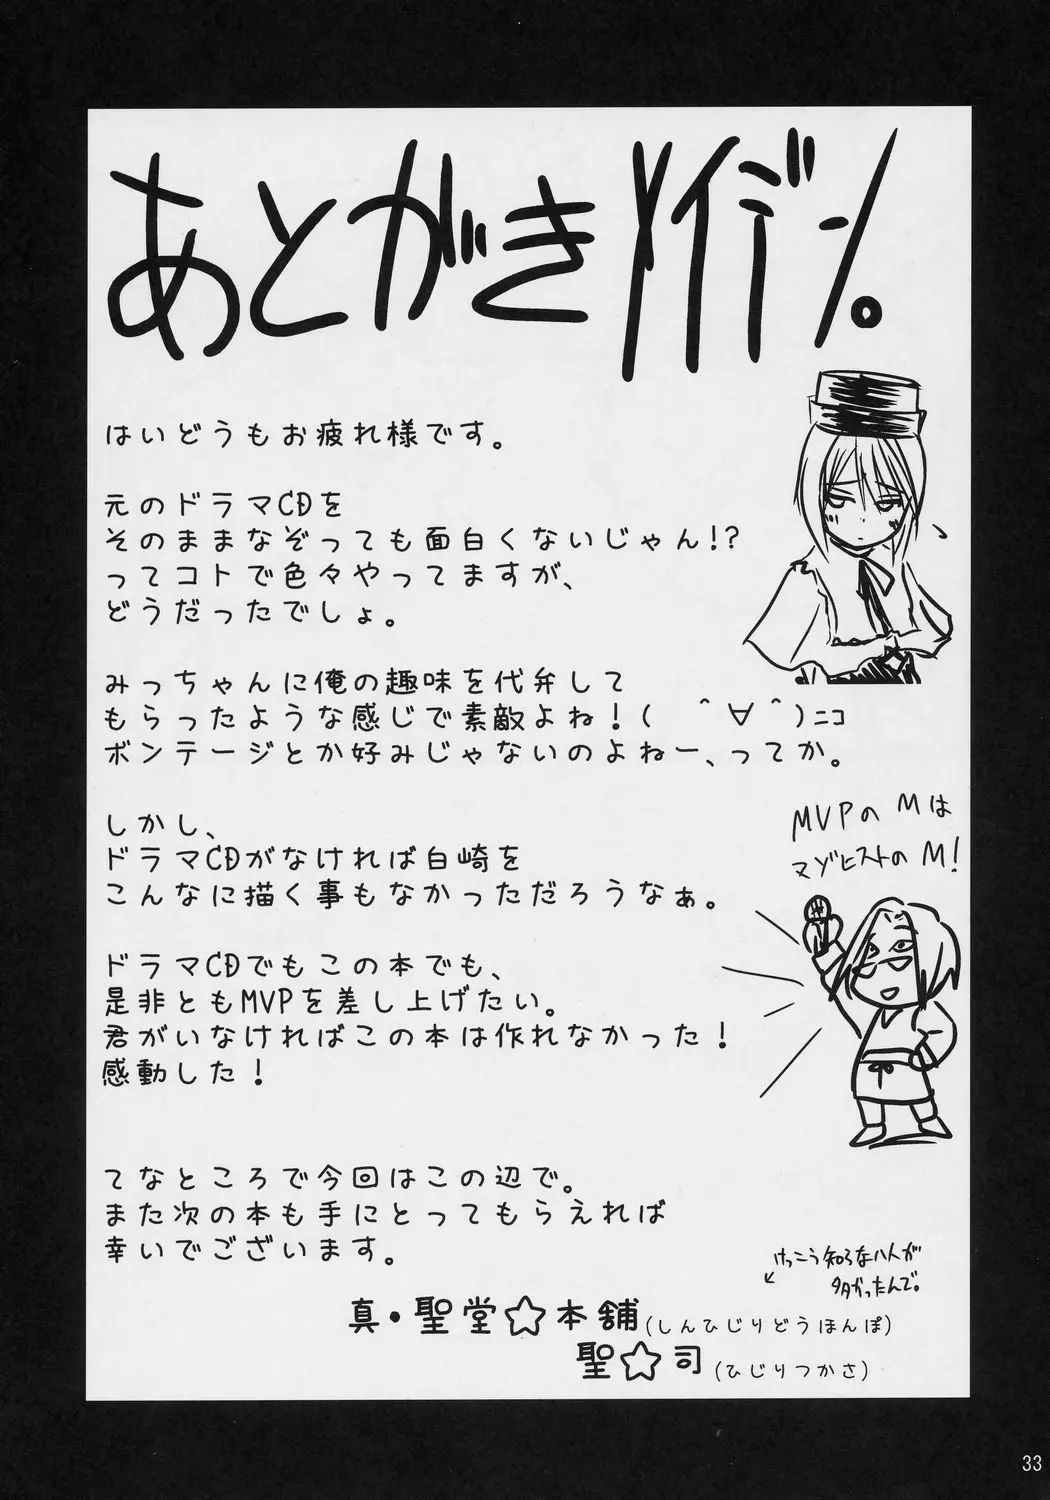 あとがきメイデン。
はいどうもお疲れ様です。
元のドラマCDを
そのままなぞっても面白くないじゃん!?
ってコトで色々やってますが、
どうだったでしょ。
みっちゃんに俺の趣味を代弁して
もらったような感じで素敵よね！( ＾∀＾)ﾆｺ
ボンテージとか好みじゃないのよねー、ってか。
しかし、
ドラマCDがなければ白崎を
こんなに描く事もなかっただろうなぁ。
MVPのMは
マゾヒストのM!
ドラマCDでもこの本でも、
是非ともMVPを差し上げたい。
君がいなければこの本は作れなかった！
感動した！
てなところで今回はこの辺で。
また次の本も手にとってもらえれば
幸いでございます。
けっこう知らない人が
多かったんで。
真・聖堂☆本舗(しんひじりどうほんぽ)
聖☆司(ひじりつかさ)
33